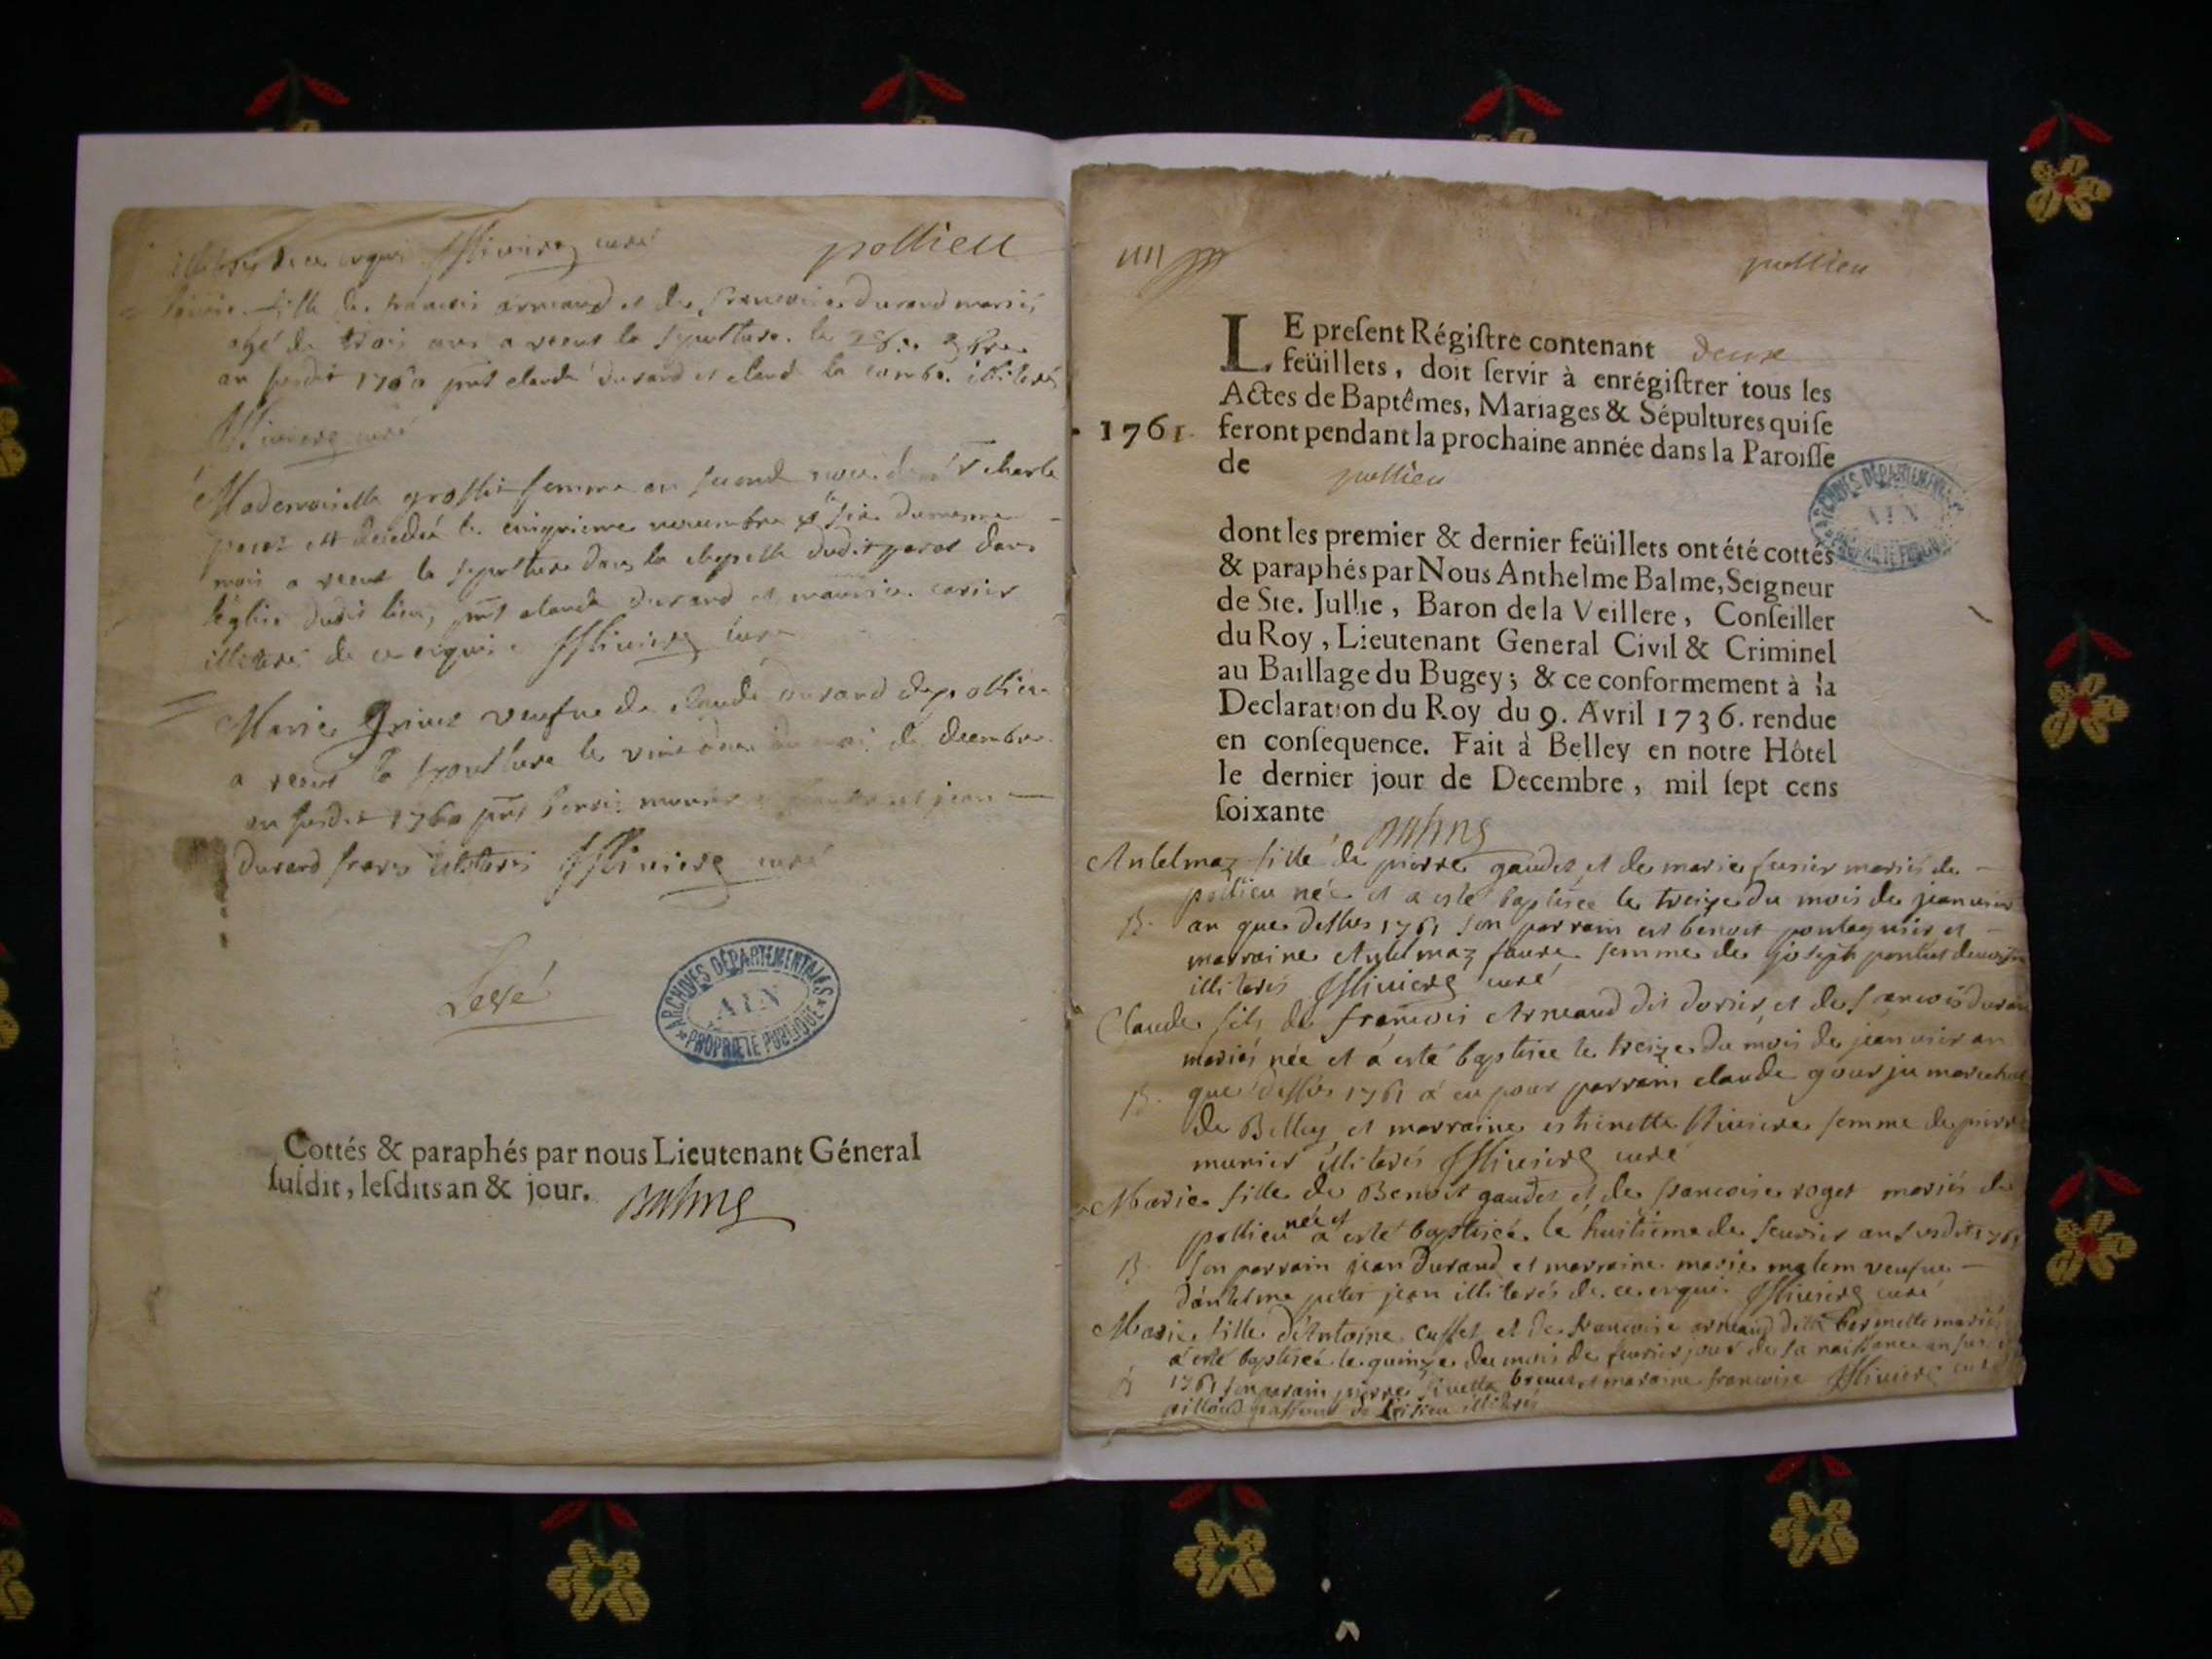 illiterés de ce requis Riviere curé
pollieu
fille de francois arneaud et de francoise durand mariés
agé de trois ans a receu la sepulture le 28e 9bre
an susdit 1760 pnt claude durand et claud la combe illiterés
Riviere curé
Mademoiselle grossit femme en second noce de Sr charle
parat est decedeé le cinquieme novembre et le sixe du meme
mois a receu la sepulture dans la chapelle dudit parat dans
l'église dudit lieu, pnt claude durand et maurice carier
illiteré de ce requis Riviere curé
Marie veufve de claude durand de pollieu
a receu la sepulture le du moi de decembre
an susdit 1760 pnt et jean
durand freres illiterés Riviere curé
Levé
ARCHIVES DÉPARTEMENTALES
AIN
PROPRIÉTÉ PUBLIQUE
Cottés & paraphés par nous Lieutenant Géneral
susdit, lesdits an & jour. Balme
pollieu
LE present Régistre contenant deux
feüillets, doit servir à enrégistrer tous les
Actes de Baptêmes, Mariages & Sépultures qui se
1761 feront pendant la prochaine année dans la Paroisse
de pollieu
ARCHIVES DÉPARTEMENTALES
AIN
PROPRIÉTÉ PUBLIQUE
dont les premier & dernier feüillets ont été cottés
& paraphés par Nous Anthelme Balme, Seigneur
de Ste. Jullie, Baron de la Veillere, Conseiller
du Roy, Lieutenant General Civil & Criminel
au Baillage du Bugey; & ce conformement à la
Declaration du Roy du 9. Avril 1736. rendue
en consequence. Fait à Belley en notre Hôtel
le dernier jour de Decembre, mil sept cens
soixante Balme
Antelmaz fille de pierre gaudet et de marie mariés de
pollieu née et a esté baptisée le treize du mois de jeanvier
B. an que dessus 1761 son parrain est benoit et
marraine Antelmaz faure femme de joseph
illiterés Riviere curé
Claude fils de francois Arneaud dit dorier et de francois durand
mariés née et a esté baptisée le treize du mois de jeanvier an
B. que dessus 1761 a eu pour parrain claude gourju marechal
de Belley et marraine estienette Riviere femme de pierre
munier illiterés Riviere curé
Marie fille de Benoit gaudet et de francoise roget mariés de
pollieu née et a esté baptiseé le huitieme de fevrier an susdit 1761
B. son parrain jean durand et marraine marie malem veufve
d'antelme petit jean illiterés de ce enquis Riviere curé
Marie fille d'Antoine Cusset et de francoise arneaud ditte bermette mariés
a esté baptiseé le quinze du mois de fevrier jour de sa naissance an
1761 son parain pierre et maraine francoise Riviere curé
illiterés